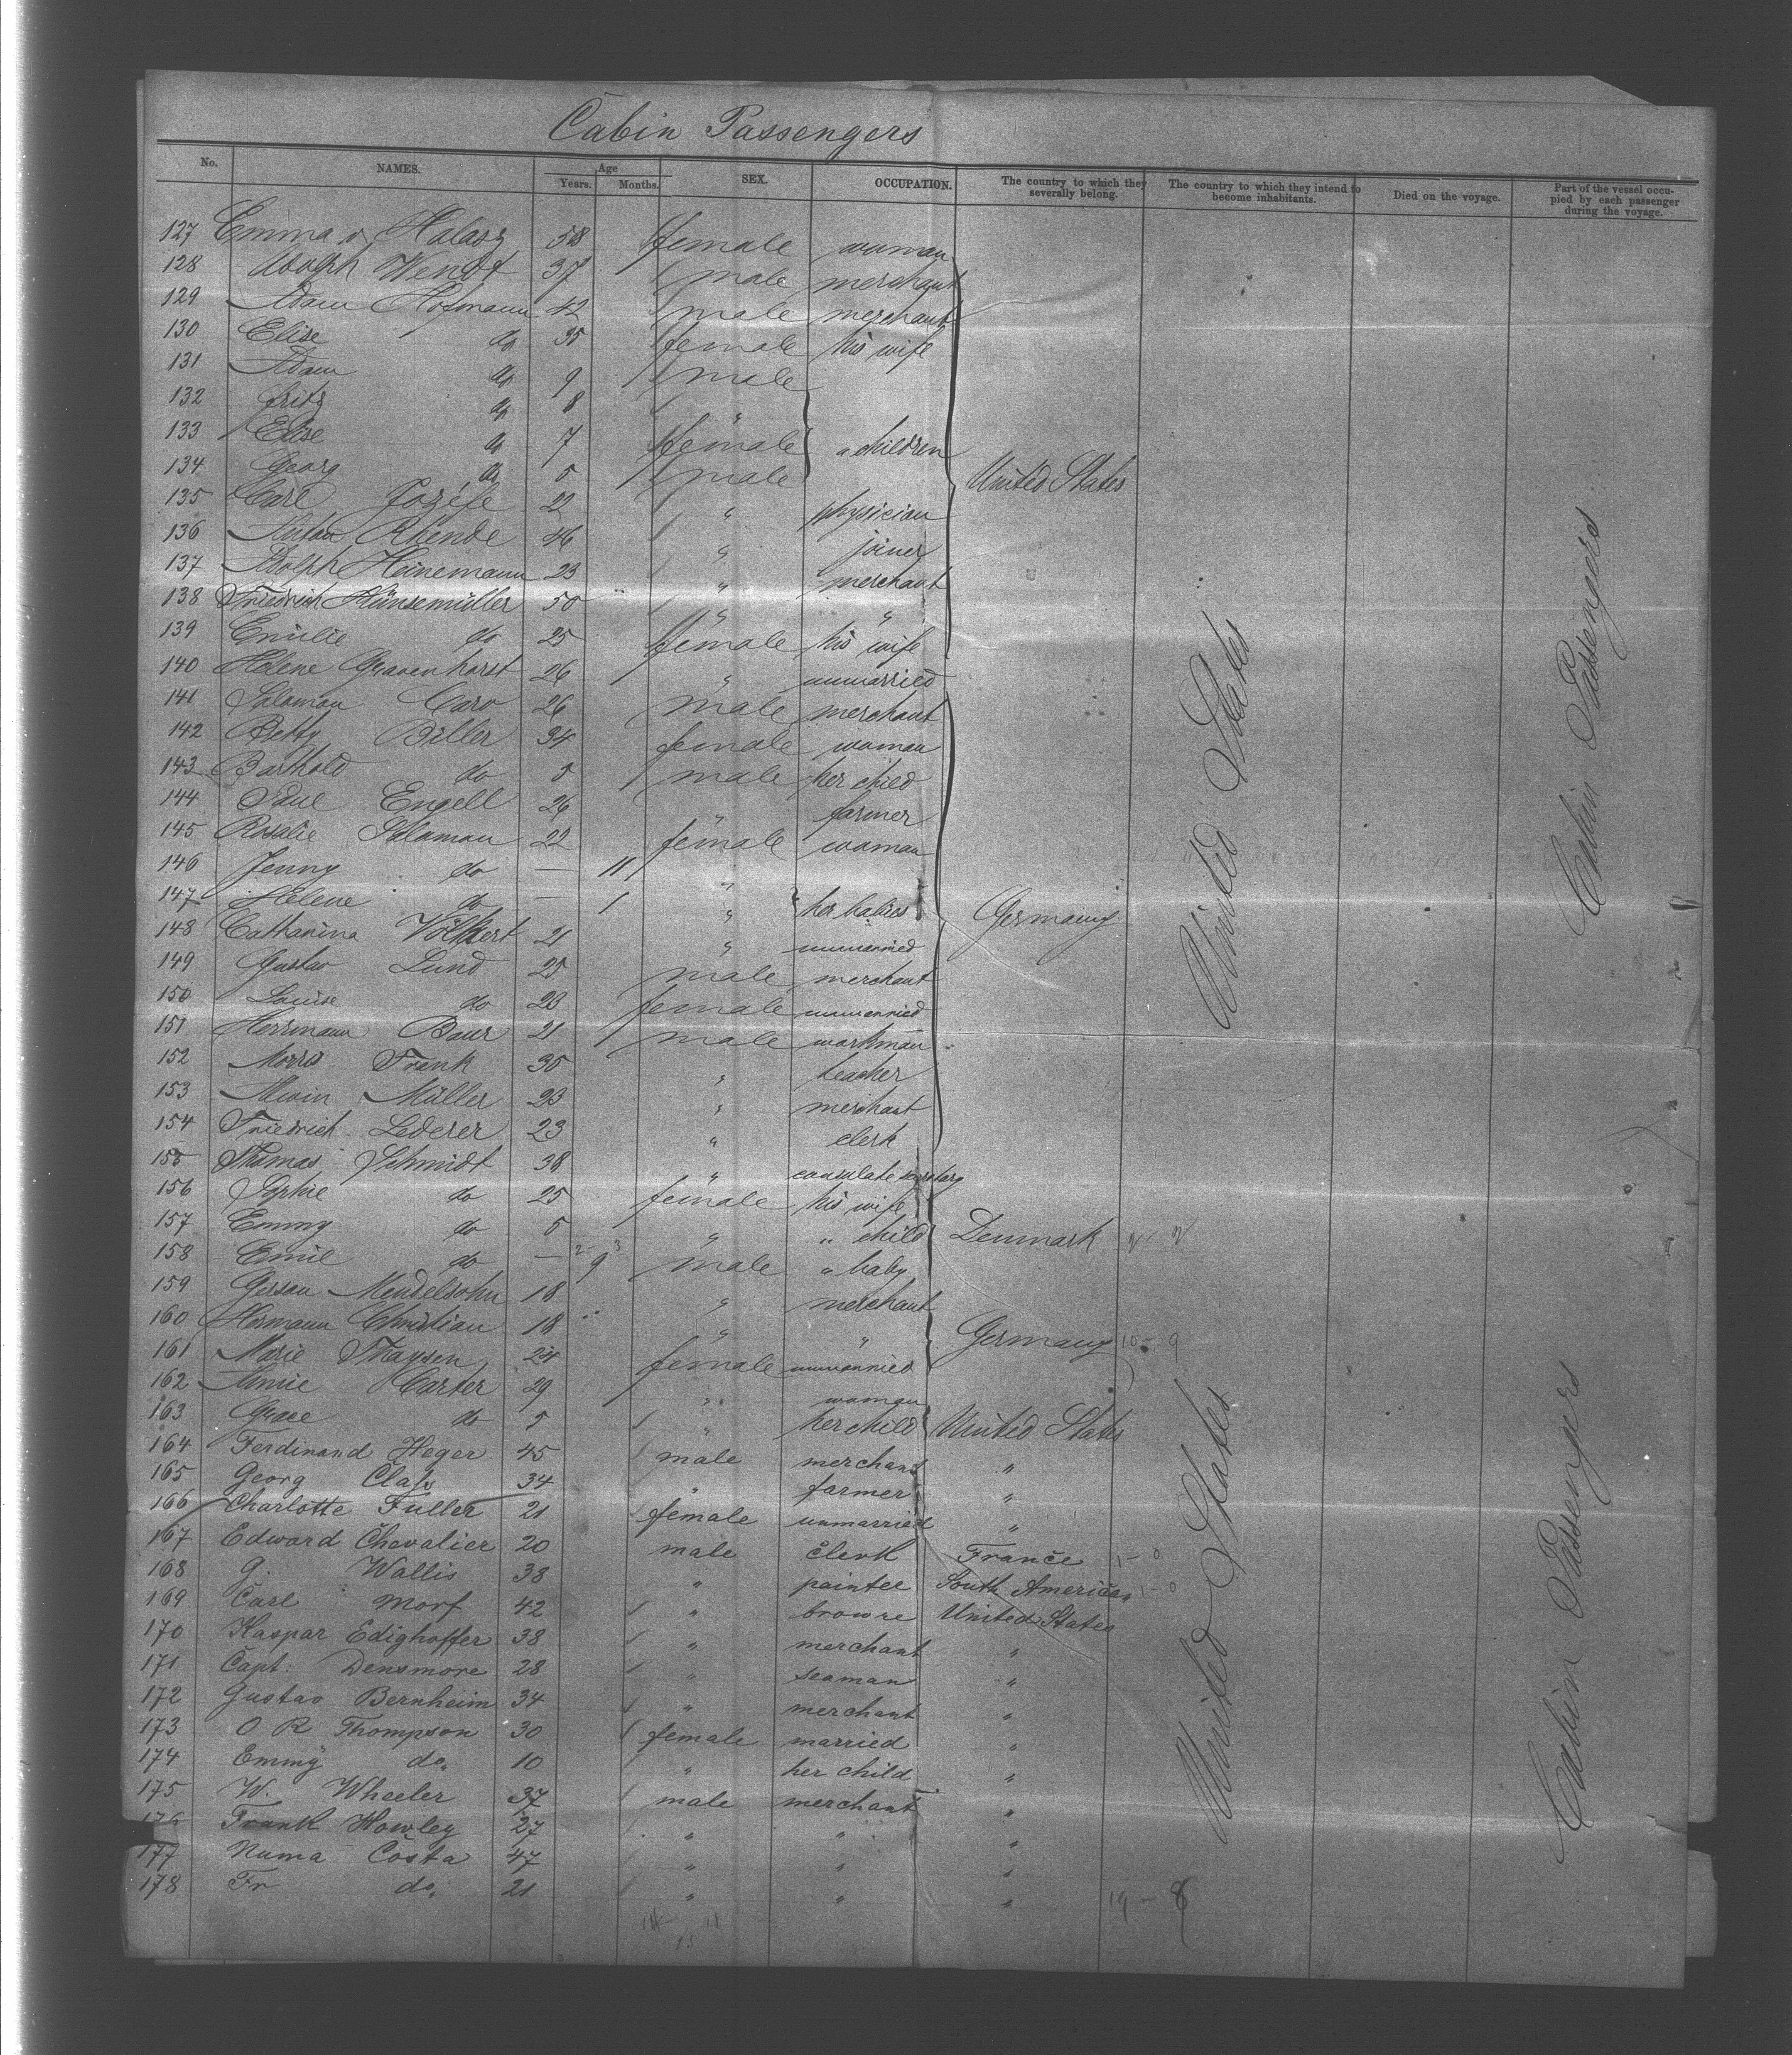 Cabin Passengers
No. NAMES. Age Years. Months. SEX. OCCUPATION. The country to which they severally belong. The country to which they intend to become inhabitants. Died on the voyage. Part of the vessel occupied by each passenger during the voyage.
127 Emma v. Halasz 58 female woman
128 Adolph Wendt 37 male merchant
129 Adam Hofmann 42 male merchant
130 Elise do 35 female his wife
131 Adam do 9 male
132 Fritz do 8 "
133 Elise do 7 female " children
134 Georg do 5 male United States
135 Carl 22 " physician
136 Anton Rhende 46 " joiner
137 Adolph Heinemann 23 " merchant
138 Friedrich Hünsemüller 50 " "
139 Emilie do 25 female his wife
140 Helene Gravenhorst 26 " unmarried
141 Salomon Caro 26 male merchant
142 Betty Biller 34 female woman
143 Barthold do 5 male her child
144 Paul Engell 26 " farmer
145 Rosalie Salomon 22 female woman
146 Jenny do — 11 "
147 Helene do — 1 " her babies Germany
148 Catharina Völkert 21 " unmarried
149 Gustav Lund 25 male merchant
150 Louise do 23 female unmarried
151 Herrmann Baur 21 male workman
152 Morris Frank 30 " teacher
153 Alwin Müller 23 " merchant
154 Friedrich Lederer 23 " clerk
155 Thomas Schmidt 38 " consulate secretary
156 Sophie do 25 female his wife
157 Emmy do 5 " " child Denmark
158 Emil do — 9 male " baby
159 Gerson Mendelsohn 18 " merchant
160 Hermann Christian 18 " " Germany 10 - 9
161 Marie Thaysen 24 female unmarried
162 Annie Carter 29 " woman
163 Grace do 5 " her child United States
164 Ferdinand Heger 45 male merchant "
165 Georg Class 34 " farmer "
166 Charlotte Fuller 21 female unmarried "
167 Edward Chevalier 20 male clerk France 1 - 0
168 G. Wallis 38 " painter South American 1 - 0
169 Carl Morf 42 " browre United States
170 Kaspar Edighoffer 38 " merchant "
171 Capt. Densmore 28 " seaman "
172 Gustav Bernheim 34 " merchant "
173 O R Thompson 30 female married "
174 Emmy do. 10 " her child "
175 W. Wheeler 37 male merchant "
176 Frank Howley 27 " " "
177 Numa Costa 47 " " "
178 Fr do. 21 " " " 19 - 8
United States
Cabin Passengers
United States
Cabin Passengers